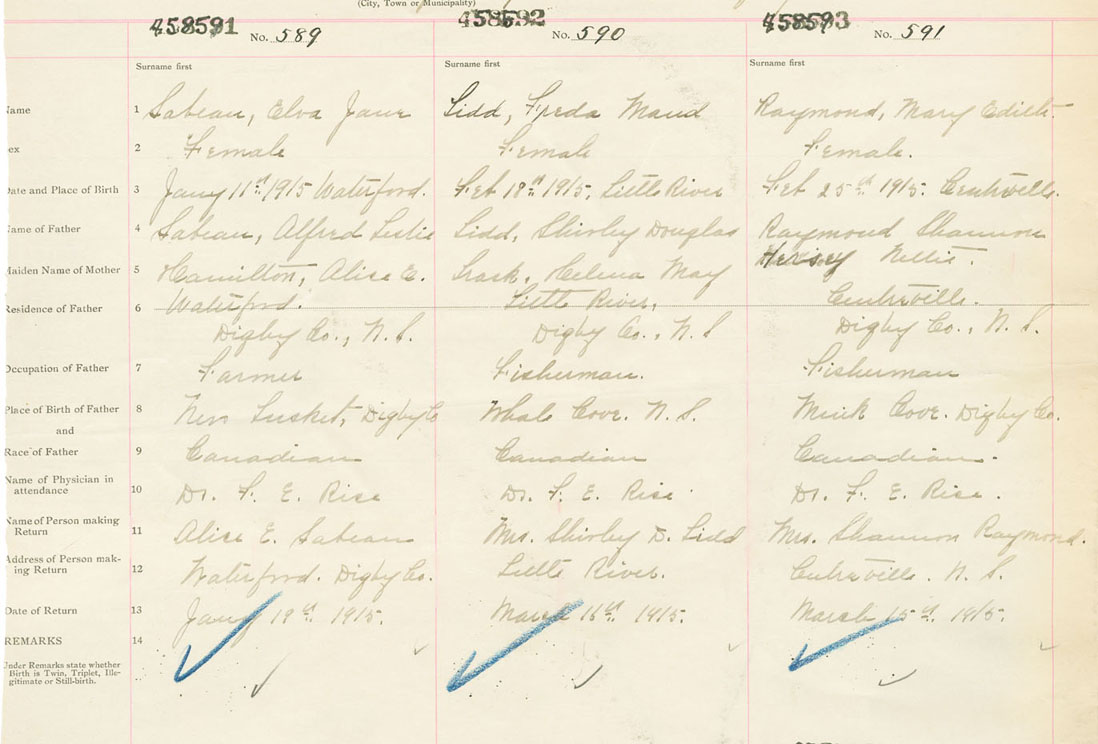 (City, Town or Municipality)
458591 458592 458593
No. 589 No. 590 No. 591
Surname first Surname first Surname first
Name 1 Sabean, Elva Jane Sidd, Freda Maud Raymond, Mary Edith.
Sex 2 Female Female Female.
Date and Place of Birth 3 Jany 11th 1915 Waterford. Feb 18th 1915, Little River Feb 25th 1915. Centreville.
Name of Father 4 Sabean, Alfred Leslie Sidd, Shirley Douglas Raymond Shannon
Maiden Name of Mother 5 Hamilton, Alice E. Trask, Helena May Hersey Nettie.
Residence of Father 6 Waterford. Little River, Centreville.
Digby Co., N.S. Digby Co., N.S Digby Co., N.S.
Occupation of Father 7 Farmer Fisherman. Fisherman
Place of Birth of Father 8 New Tusket, Digby Co Whale Cove. N.S. Mink Cove. Digby Co.
and
Race of Father 9 Canadian Canadian Canadian.
Name of Physician in
attendance 10 Dr. F. E. Rice Dr. F. E. Rice Dr. F. E. Rice.
Name of Person making
Return 11 Alice E. Sabean Mrs. Shirley D. Sidd Mrs. Shannon Raymond.
Address of Person mak-
ing Return 12 Waterford. Digby Co. Little River. Centreville. N.S.
Date of Return 13 Jany 19th 1915. March 15th 1915. March 15th 1915.
REMARKS 14
Under Remarks state whether
Birth is Twin, Triplet, Ille-
gitimate or Still-birth.